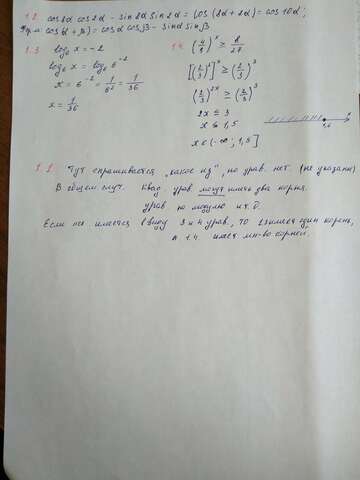 1.2. cos8α cos2α - sin8α sin2α = cos(8α+2α) = cos10α;
cos(α+β) = cosα cosβ - sinα sinβ
1.3 log₆ x = -2
log₆ x = log₆ 6⁻²
x = 6⁻² = 1/6² = 1/36
x = 1/36
1.4. (4/9)ˣ ≥ 8/27
[(2/3)²]ˣ ≥ (2/3)³
(2/3)²ˣ ≥ (2/3)³
2x ≤ 3
x ≤ 1,5
1,5
x ∈ (-∞; 1,5]
1.1. Тут спрашивается "какое из", но урав. нет. (не указаны)
В общем случ. квад. урав могут иметь два корня.
урав по модулю и т.д.
Если же имеется ввиду 3 и 4 урав., то 1.3 имеет один корень,
а 1.4 имеет мн-во корней.